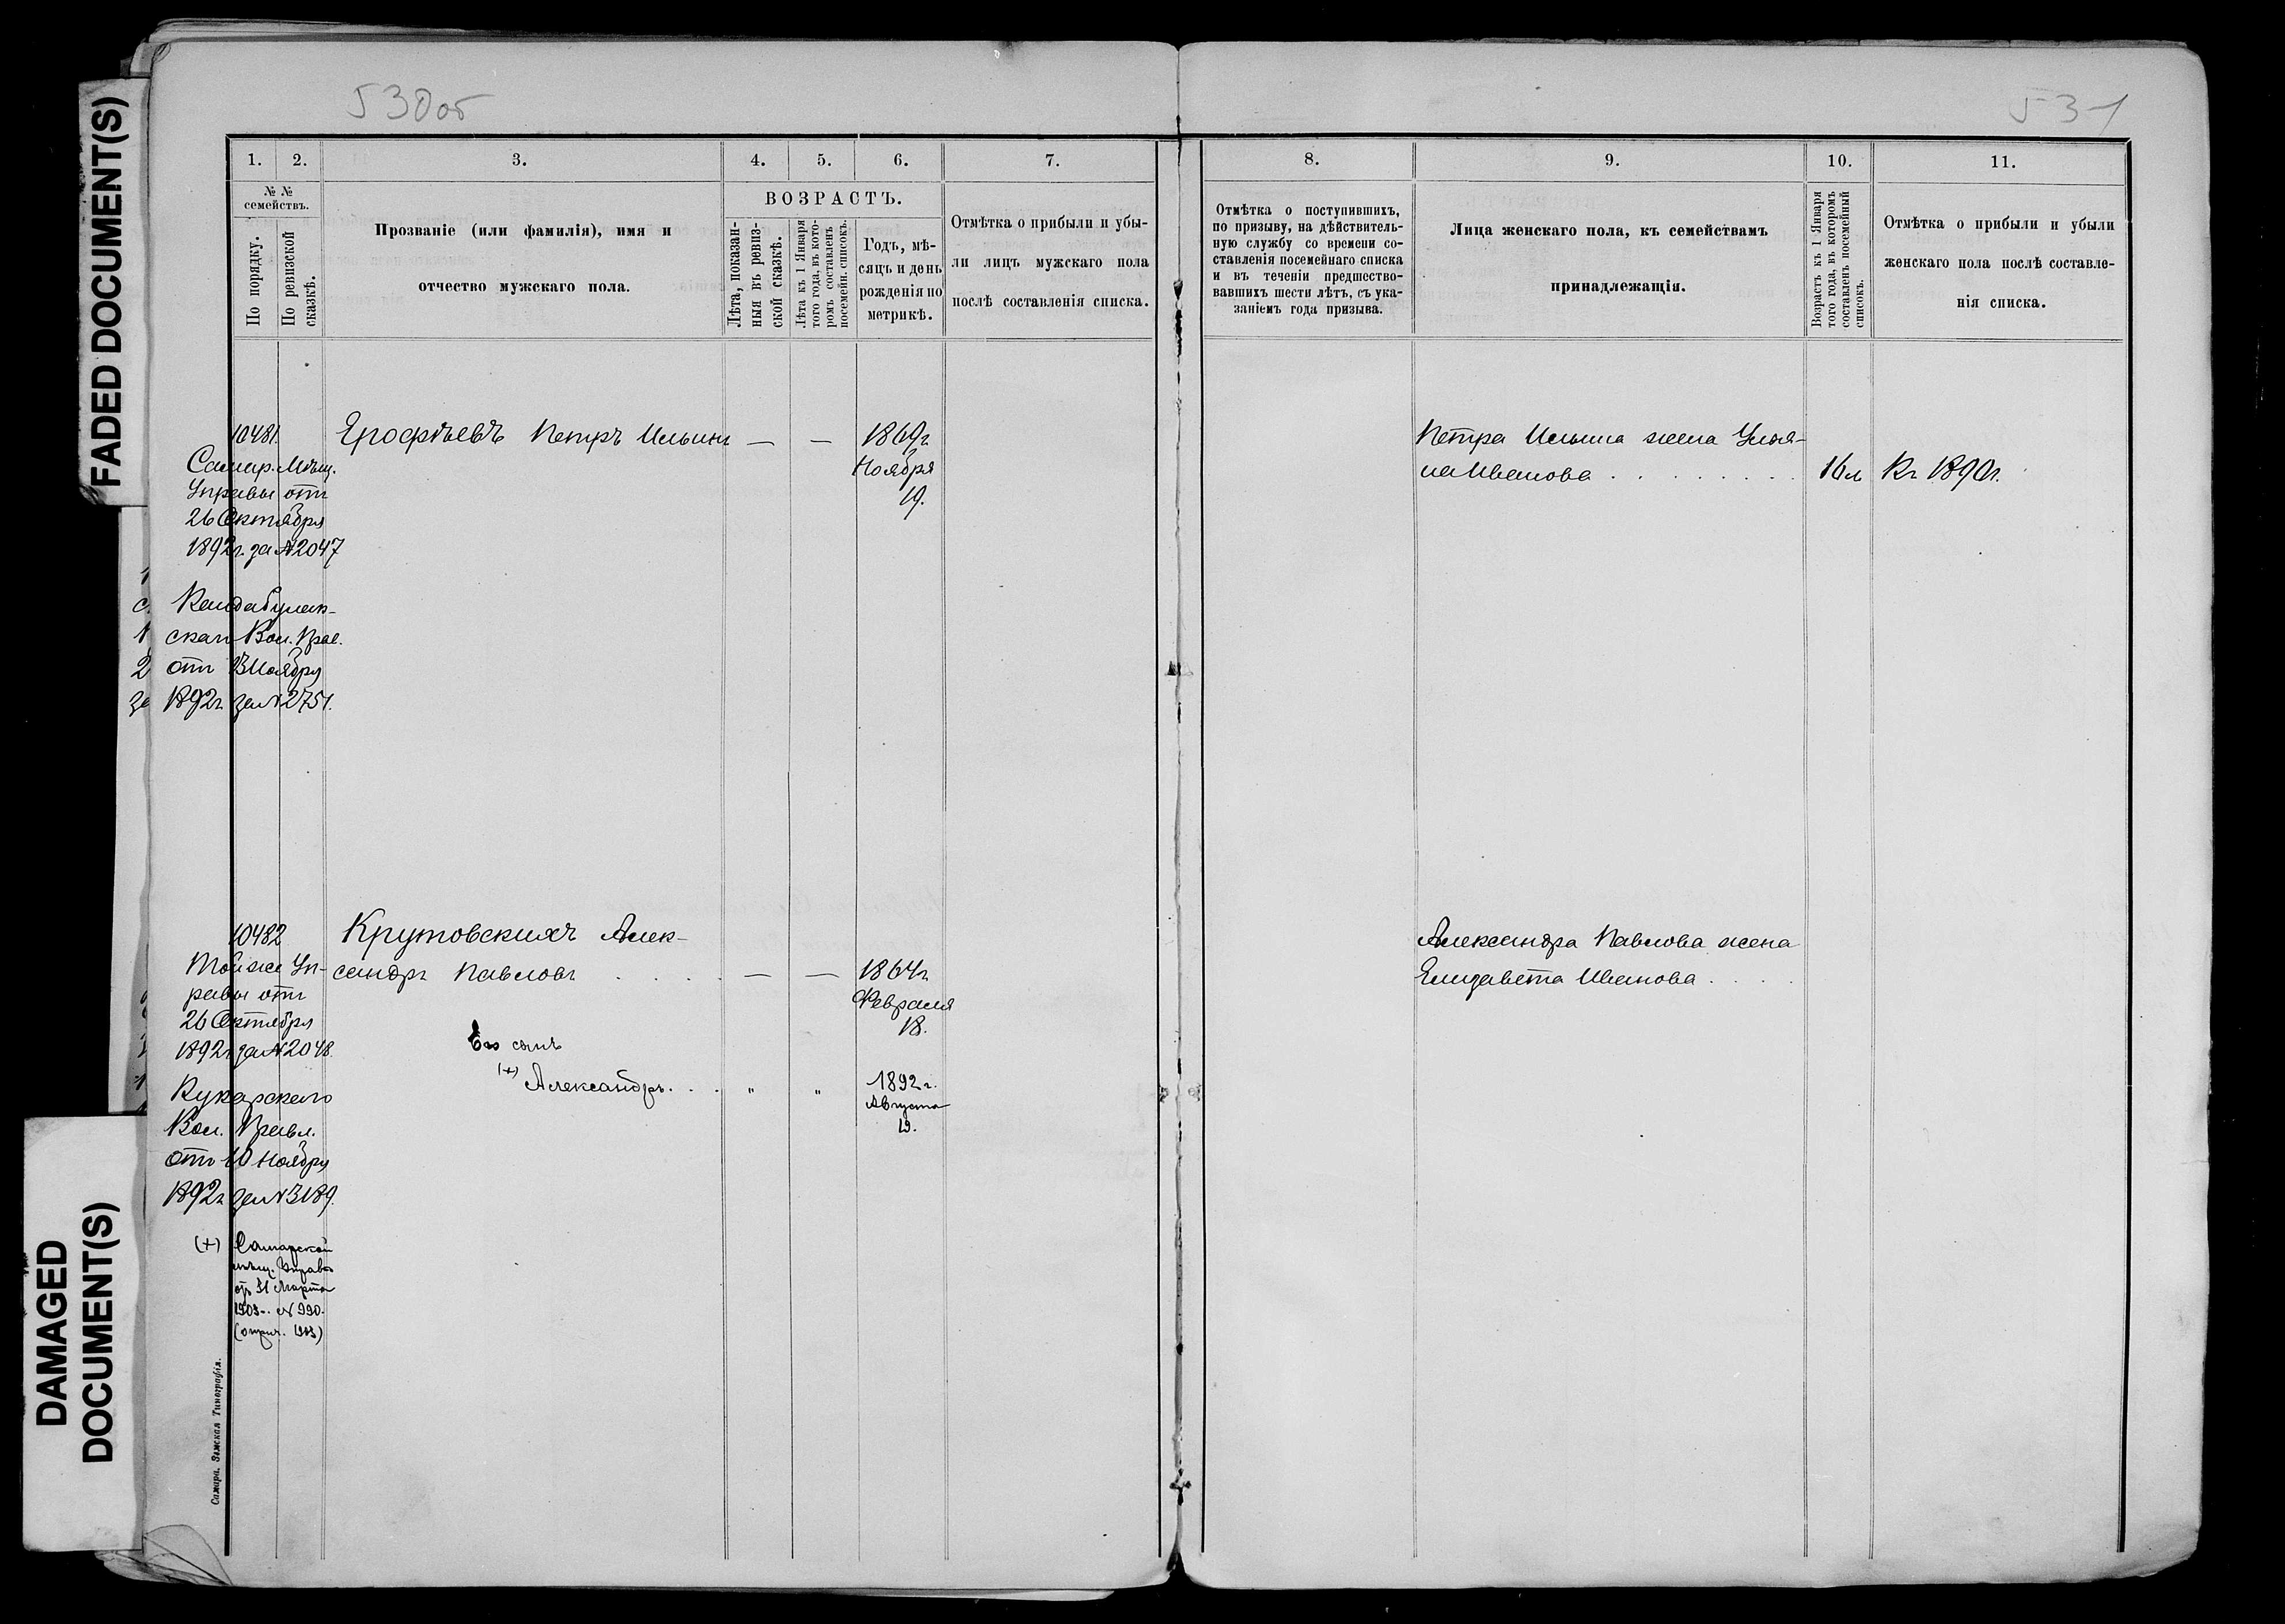 FADED DOCUMENT(S)
DAMAGED
DOCUMENT(S)
530об
1.
2.
3.
4.
5.
6.
7.
№ №
семействъ.
По порядку.
По ревизской
сказкѣ.
Прозваніе (или фамилія), имя и
отчество мужскаго пола.
ВОЗРАСТЪ.
Лѣта, показан-
ныя въ ревиз-
ской сказкѣ.
Лѣта къ 1 Января
того года, въ кото-
ромъ составленъ
посемейн. списокъ.
Годъ, мѣ-
сяцъ и день
рожденія по
метрикѣ.
Отмѣтка о прибыли и убы-
ли лицъ мужскаго пола
послѣ составленія списка.
10481
Ерофѣевъ Петръ Ильинъ — — 1869г.
Самар. Мѣщ.
Ноября
Управы отъ
19.
26 Октября
1892г. за №2047
Кандабулак-
скаго Вол. Прав.
отъ 13 Ноября
1892г. за №2751.
10482
Крутовскихъ Алек-
Той же Уп-
сандръ Павловъ . . . . — — 1864г.
равы отъ
Февраля
26 Октября
18.
1892г. за №2048.
Его сынъ
(+) Александръ. . . " " 1892г.
Августа
19.
Кукарскаго
Вол. Правл.
отъ 10 Ноября
1892г. за №3189.
(+) Самарской
мѣщ. Управы
отъ 31 Марта
1903г. № 990.
Самара. Земская Типографія.
531
8.
9.
10.
11.
Отмѣтка о поступившихъ,
по призыву, на дѣйствитель-
ную службу со времени со-
ставленія посемейнаго списка
и въ теченіи предшество-
вавшихъ шести лѣтъ, съ ука-
заніемъ года призыва.
Лица женскаго пола, къ семействамъ
принадлежащія.
Возрастъ къ 1 Января
того года, въ которомъ
составленъ посемейный
списокъ.
Отмѣтка о прибыли и убыли
женскаго пола послѣ составле-
нія списка.
Петра Ильина жена Улья-
на Иванова . . . . . . . . 16л Къ 1890г.
Александра Павлова жена
Елизавета Иванова . . . .